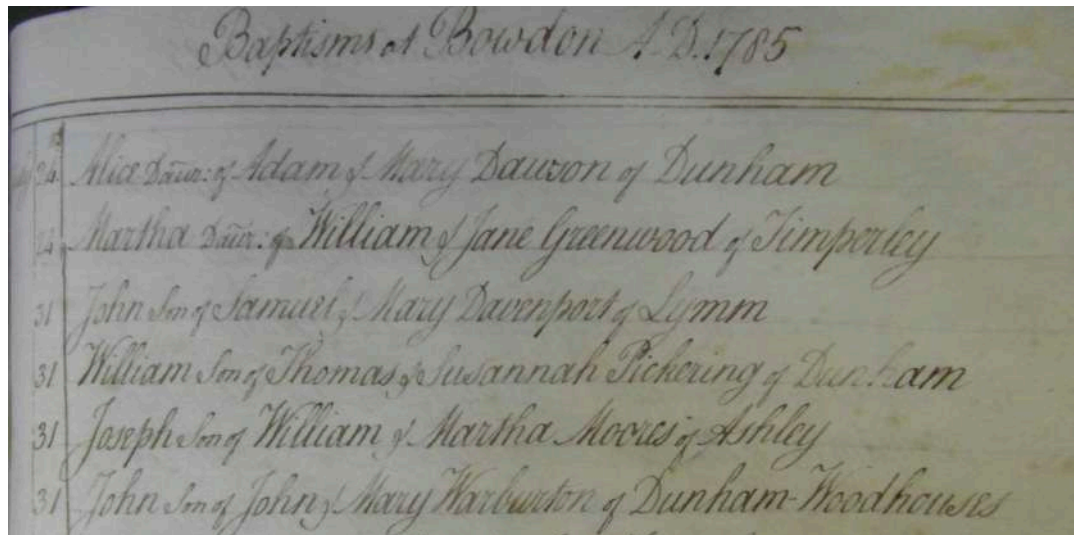 Baptisms at Bowdon A.D. 1785
24 Alice Daur: of Adam & Mary Dawson of Dunham
24 Martha Daur: of William & Jane Greenwood of Timperley
31 John Son of Samuel & Mary Davenport of Lymm
31 William Son of Thomas & Susannah Pickering of Dunham
31 Joseph Son of William & Martha Moores of Ashley
31 John Son of John & Mary Warburton of Dunham-Woodhouses